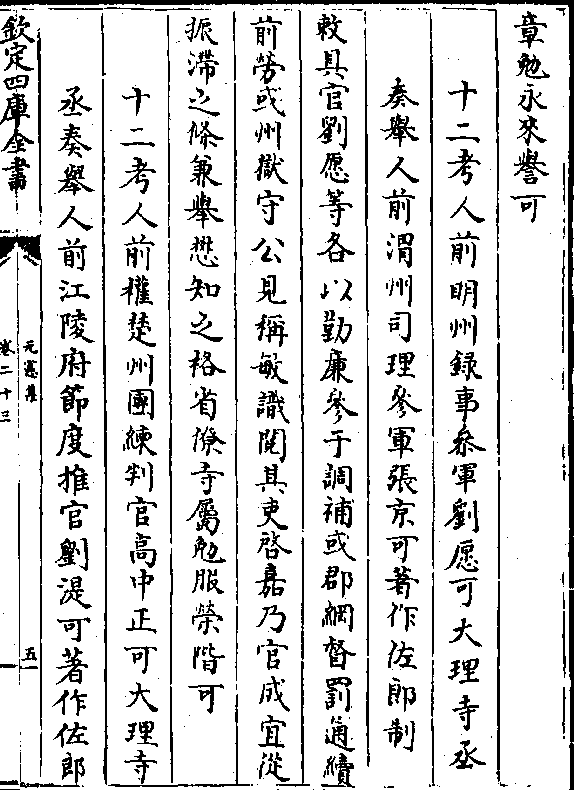 章勉永來譽可
十二考人前明州録事叅軍劉愿可大理寺丞
奏舉人前渭州司理叅軍張京可著作佐郎制
敕具官劉愿等各以勤廉參于調補或郡綱督罰通績
前勞或州獄守公見稱敏識閲其吏啓嘉乃官成宜從
振滯之條兼舉懋知之格省僚寺屬勉服榮階可
十二考人前權楚州團練判官高中正可大理寺
丞奏舉人前江陵府節度推官劉湜可著作佐郎
欽定四庫全書
元憲集
卷二十三
五